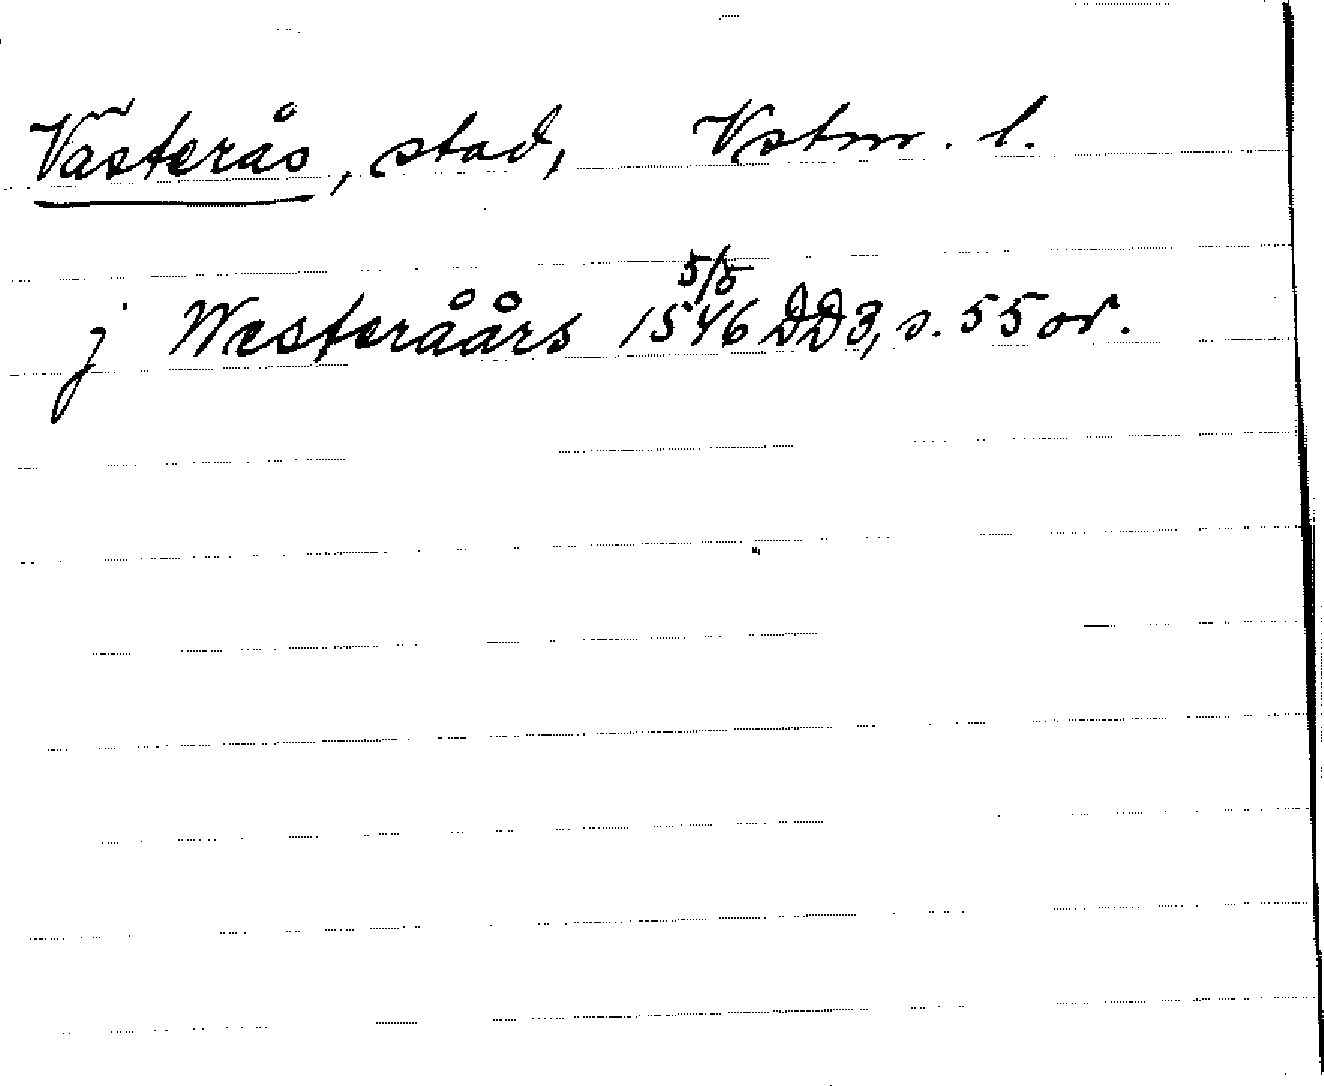 Västerås, stad, Vstm. l.
j Westeråårs 1546 5/5 DD3, s. 55 or.